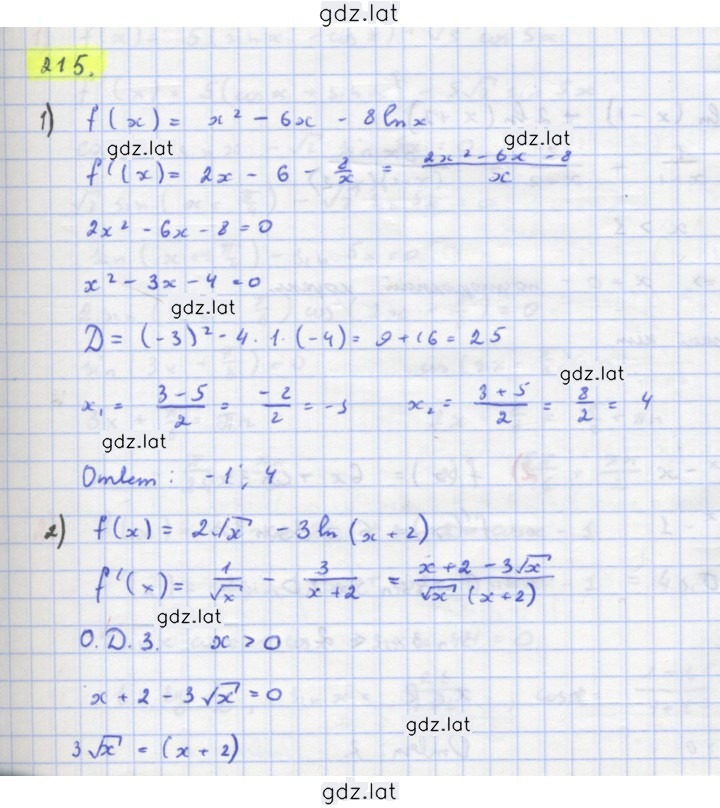 gdz.lat
215.
1) f(x) = x² - 6x - 8 ln x
gdz.lat
gdz.lat
f'(x) = 2x - 6 - 8/x = (2x² - 6x - 8)/x
2x² - 6x - 8 = 0
x² - 3x - 4 = 0
gdz.lat
D = (-3)² - 4 · 1 · (-4) = 9 + 16 = 25
gdz.lat
x₁ = (3 - 5)/2 = -2/2 = -1 x₂ = (3 + 5)/2 = 8/2 = 4
gdz.lat
Ответ: -1; 4
2) f(x) = 2√x - 3 ln(x + 2)
f'(x) = 1/√x - 3/(x + 2) = (x + 2 - 3√x)/(√x (x + 2))
gdz.lat
О.D.З. x > 0
x + 2 - 3√x = 0
gdz.lat
3√x = (x + 2)
gdz.lat